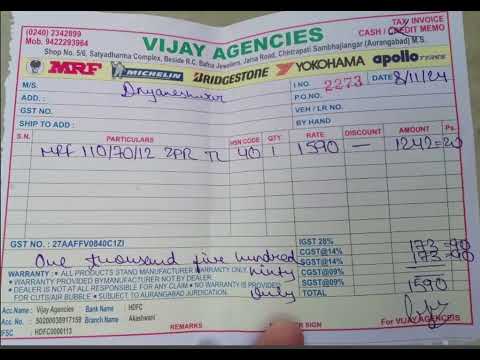 (0240) 2342899
Mob. 9422293964
TAX INVOICE
CASH / CREDIT MEMO
VIJAY AGENCIES
Shop No. 5/6, Satyadharma Complex, Beside R.C. Bafna Jewelers, Jalna Road, Chhatrapati Sambhajiangar (Aurangabad) M.S.
MRF MICHELIN BRIDGESTONE YOKOHAMA apollo TYRES
M/S. Dnyaneshwar I NO. 2273 DATE 8/11/24
ADD.: P.O.NO.
GST NO. VEH / LR NO.
SHIP TO ADD: BY HAND
S.N. PARTICULARS HSN CODE QTY RATE DISCOUNT AMOUNT Ps.
MRF 110/70/12 2PR TL 40 1 1590 — 1242=20
GST NO. : 27AAFFV0840C1ZI IGST 28%
One thousand five hundred CGST@14% 173=90
SGST@14% 173=90
WARRANTY : • ALL PRODUCTS STAND MANUFACTURER WARRANTY ONLY. ninty CGST@09%
• WARRANTY PROVIDED BYMANUFACTURER NOT BY DEALER.
• DEALER IS NOT AT ALL RESPONSIBLE FOR ANY CLAIM • NO WARRANTY IS PROVIDED SGST@09%
FOR CUTS/AIR BUBBLE • SUBJECT TO AURANGABAD JURDICATION. only TOTAL 1590
Acc Name : Vijay Agencies Bank Name : HDFC
Acc No. : 50200038917158 Branch Name : Akashwani
IFSC : HDFC0006113 REMARKS SIGN For VIJAY AGENCEIS